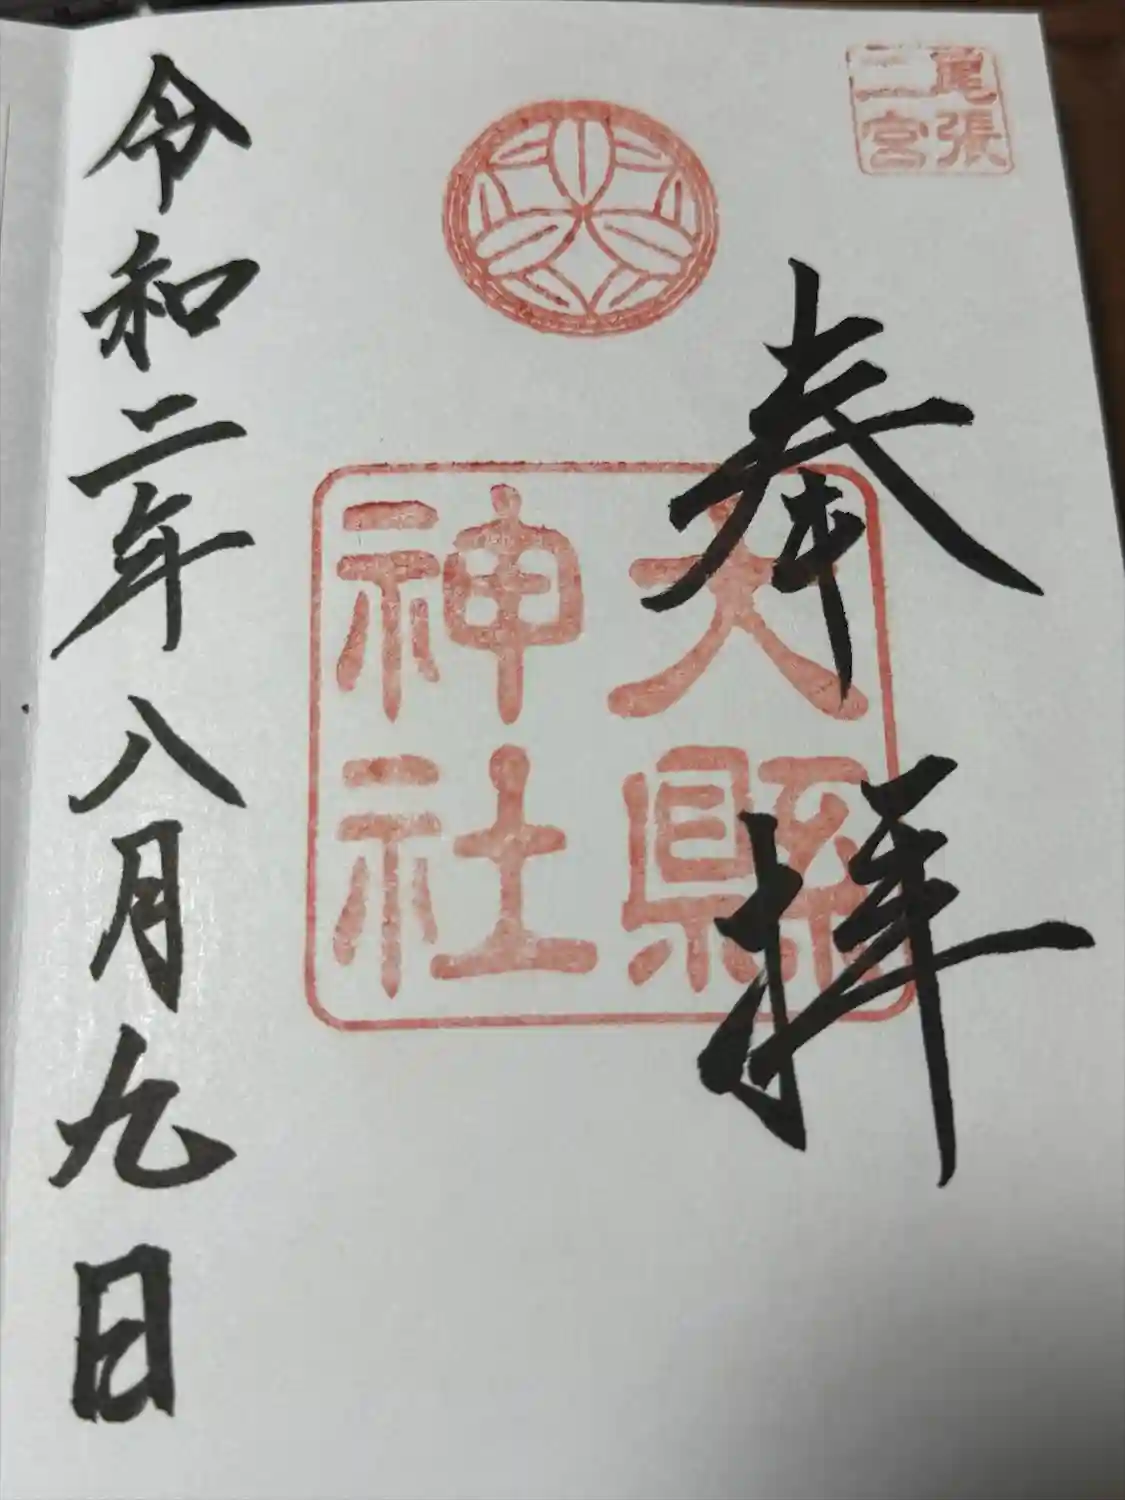 尾張
二宮
奉拝
大縣
神社
令和二年八月九日